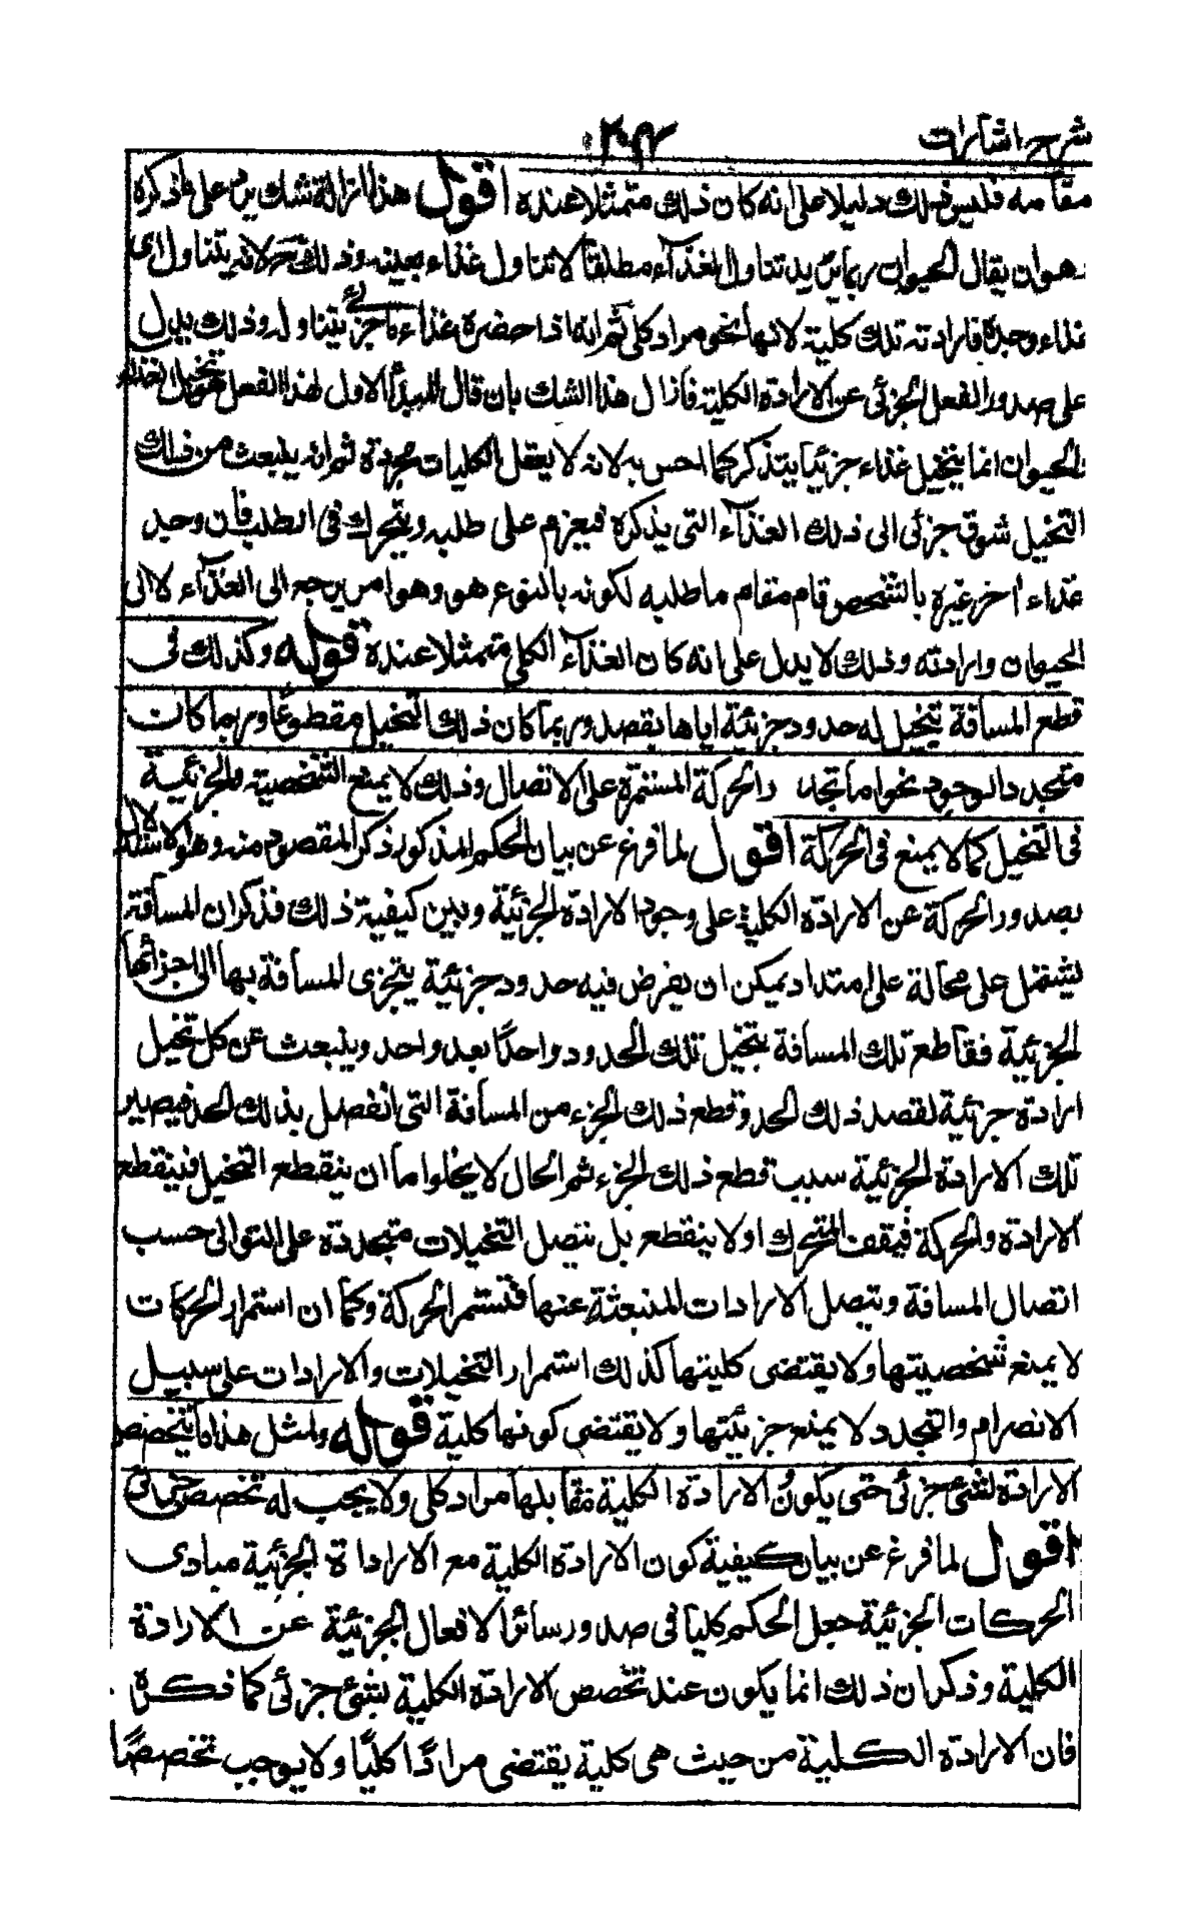 شرح اشارات
٢٠٤
مقامه فليس ذلك دليلا على انه كان ذلك متمثلا عنده اقول هذا ازالة شك يرد على ما ذكره
هو ان يقال الحيوان ربما يريد تناول الغذاء مطلقا لا تناول غذاء بعينه وذلك لانه يتناول اى
غذاء وجده فارادته تلك كلية لانها نحو مراد كلى ثم انه اذا حضره غذاء ما جزئى يتناوله وذلك يدل
على صدور الفعل الجزئى عن الارادة الكلية فازال هذا الشك بان قال المبدأ الاول لهذا الفعل هو تخيل الغذاء
فالحيوان انما يتخيل غذاء جزئيا يتذكر كما احس به لانه لا يعقل الكليات مجردة ثم انه ينبعث من ذلك
التخيل شوق جزئى الى ذلك الغذاء التى يذكره فيعزم على طلبه ويتحرك فى الطلب فان وجد
غذاء اخر غيره بالشخص قام مقام ما طلبه لكونه بالنوع هو وهو امر يرجع الى الغذاء لا الى
الحيوان وارادته وذلك لا يدل على انه كان الغذاء الكلى متمثلا عنده قوله وكذلك فى
قطع المسافة يتخيل له حدود جزئية اياها يقصد وربما كان ذلك التخيل مقطوعا وربما كان
متجدد الوجود نحوا ما تجدد الحركة المستمرة على الاتصال وذلك لا يمنع الشخصية والجزئية
فى التخيل كما لا يمنع فى الحركة اقول لما فرغ عن بيان الحكم المذكور ذكر المقصود منه وهو الاستدلال
بصدور الحركة عن الارادة الكلية على وجود الارادة الجزئية وبين كيفية ذلك فذكر ان المسافة
يشتمل على محالة على امتداد يمكن ان يفرض فيه حدود جزئية يتجزى المسافة بها الى اجزائها
الجزئية فقاطع تلك المسافة يتخيل تلك الحدود واحدا بعد واحد وينبعث عن كل تخيل
ارادة جزئية لقصد ذلك الحد وقطع ذلك الجزء من المسافة التى انفصل بذلك الحد فيصير
تلك الارادة الجزئية سبب قطع ذلك الجزء ثم الحال لا يخلوا ما ان ينقطع التخيل فينقطع
الارادة والحركة فيقف المتحرك او لا ينقطع بل يتصل التخيلات متجددة على التوالى حسب
اتصال المسافة ويتصل الارادات المنبعثة عنها فتستمر الحركة وكما ان استمرار الحركات
لا يمنع شخصيتها ولا يقتضى كليتها كذلك استمرار التخيلات والارادات على سبيل
الانصرام والتجدد لا يمنع جزئيتها ولا يقتضى كونها كلية قوله ولمثل هذا ما يتخصص
الارادة لشئ جزئى حتى يكون الارادة الكلية مقابلها مراد كلى ولا يجب له تخصص جزئى
اقول لما فرغ عن بيان كيفية كون الارادة الكلية مع الارادة الجزئية مبادى
الحركات الجزئية جعل الحكم كليا فى صدور سائر الافعال الجزئية عن الارادة
الكلية وذكر ان ذلك انما يكون عند تخصص الارادة الكلية بشئ جزئى كما ذكره
فان الارادة الكلية من حيث هى كلية يقتضى مرادا كليا ولا يوجب تخصصا